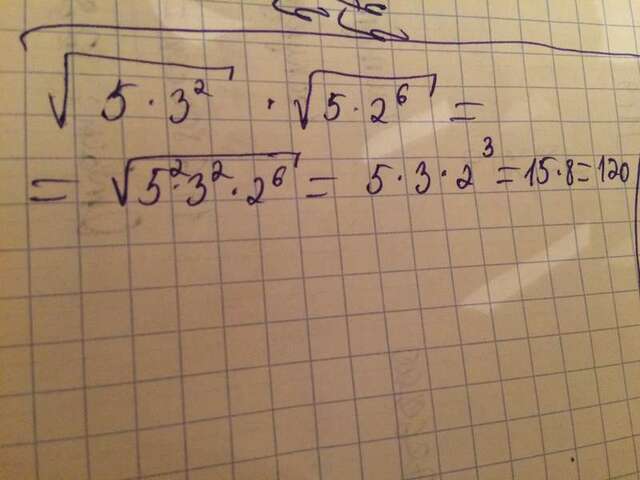 √5·3² · √5·2⁶ =
= √5²·3²·2⁶ = 5·3·2³ = 15·8=120